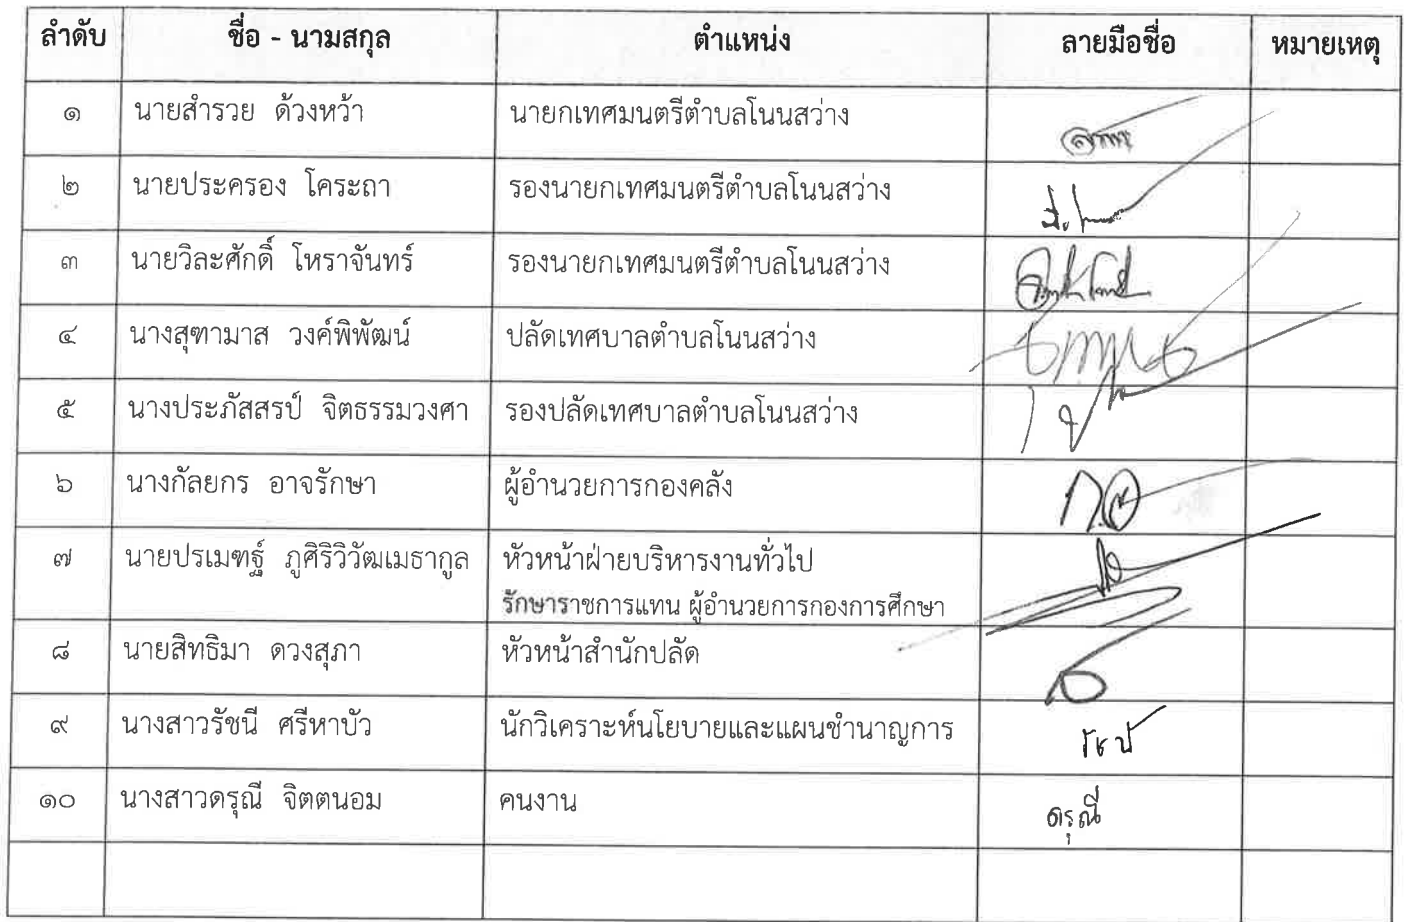 ลำดับ ชื่อ - นามสกุล ตำแหน่ง ลายมือชื่อ หมายเหตุ
๑ นายสำรวย ด้วงหว้า นายกเทศมนตรีตำบลโนนสว่าง
๒ นายประครอง โคระถา รองนายกเทศมนตรีตำบลโนนสว่าง
๓ นายวิละศักดิ์ โหราจันทร์ รองนายกเทศมนตรีตำบลโนนสว่าง
๔ นางสุฑามาส วงค์พิพัฒน์ ปลัดเทศบาลตำบลโนนสว่าง
๕ นางประภัสสรป์ จิตธรรมวงศา รองปลัดเทศบาลตำบลโนนสว่าง
๖ นางกัลยกร อาจรักษา ผู้อำนวยการกองคลัง
๗ นายปรเมฑฐ์ ภูศิริวิวัฒเมธากูล หัวหน้าฝ่ายบริหารงานทั่วไป
รักษาราชการแทน ผู้อำนวยการกองการศึกษา
๘ นายสิทธิมา ดวงสุภา หัวหน้าสำนักปลัด
๙ นางสาวรัชนี ศรีหาบัว นักวิเคราะห์นโยบายและแผนชำนาญการ
๑๐ นางสาวดรุณี จิตตนอม คนงาน ดรุณี